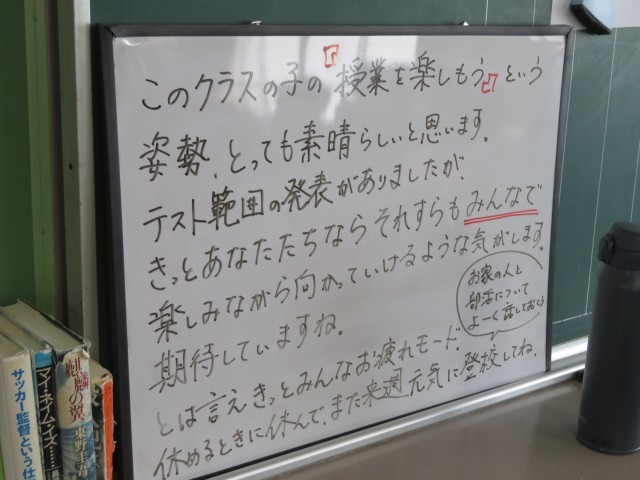 このクラスの子の『授業を楽しもう』という
姿勢、とっても素晴らしいと思います。
テスト範囲の発表がありましたが、
きっとあなたたちならそれすらもみんなで
楽しみながら向かっていけるような気がします。
期待していますね。
お家の人と
部活について
よーく話しておこう
とは言えきっとみんなお疲れモード。
休めるときに休んで、また来週元気に登校してね。
サッカー監督という仕
マイ・ネイム・イズ……
麒麟の翼
東野圭吾